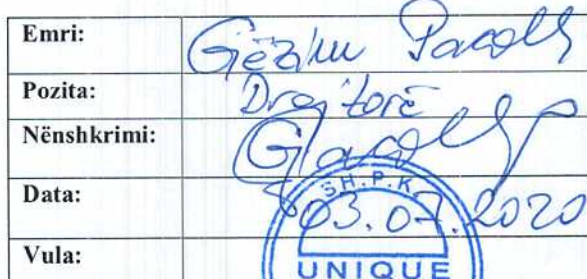 Emri: Gëzim Pacolli
Pozita: Drejtorë
Nënshkrimi:
Data: 03.07.2020
Vula: SH.P.K.
UNIQUE